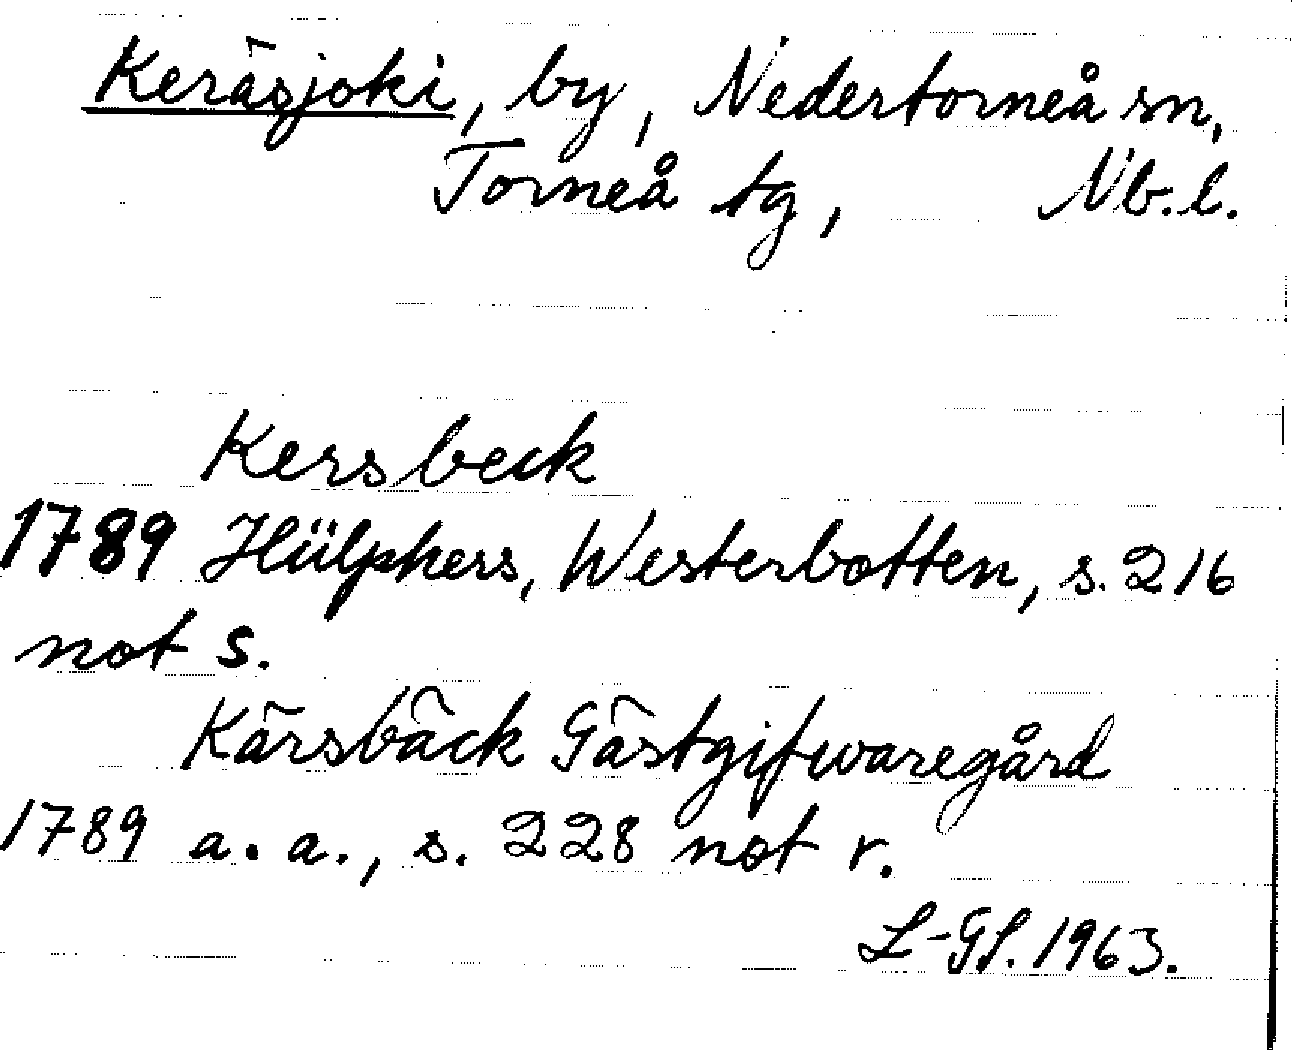 Keräsjoki, by, Nedertorneå sn,
Torneå tg, Nb.l.
Kersbeck
1789 Hülphers, Westerbotten, s. 216
not s.
Kärsbäck Gästgifwaregård
1789 a.a., s. 228 not r.
L-GL. 1963.